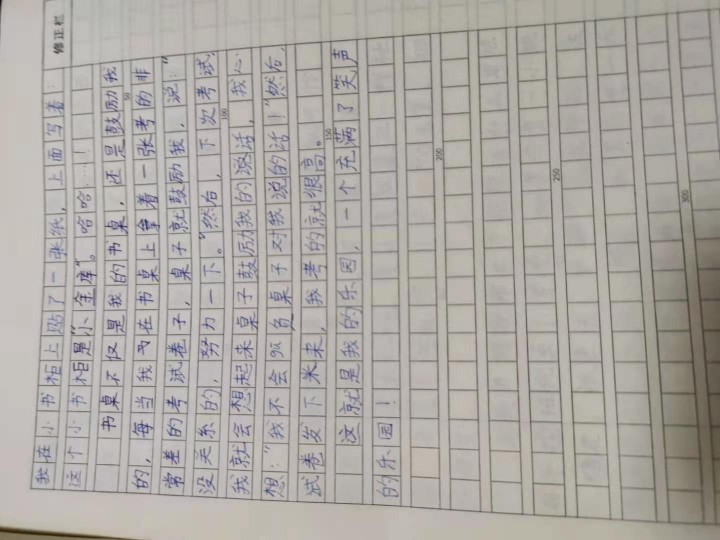 修正栏
我在小书柜上贴了一张纸，上面写着：
这个小书柜是“小金库”。哈哈……！
书桌不仅是我的书桌，还是鼓励我
的，每当我在书桌上拿着一张考的非
常差的考试卷子，桌子就鼓励我，说：“
没关系的，努力一下。”然后，下次考试，
我就会想起来桌子鼓励我的说话，我心
想：“我不会负桌子对我说的话！”然后，
试卷发下来来，我考的就很高。
这就是我的乐园，一个充满了笑声
的乐园！
50
100
150
200
250
300